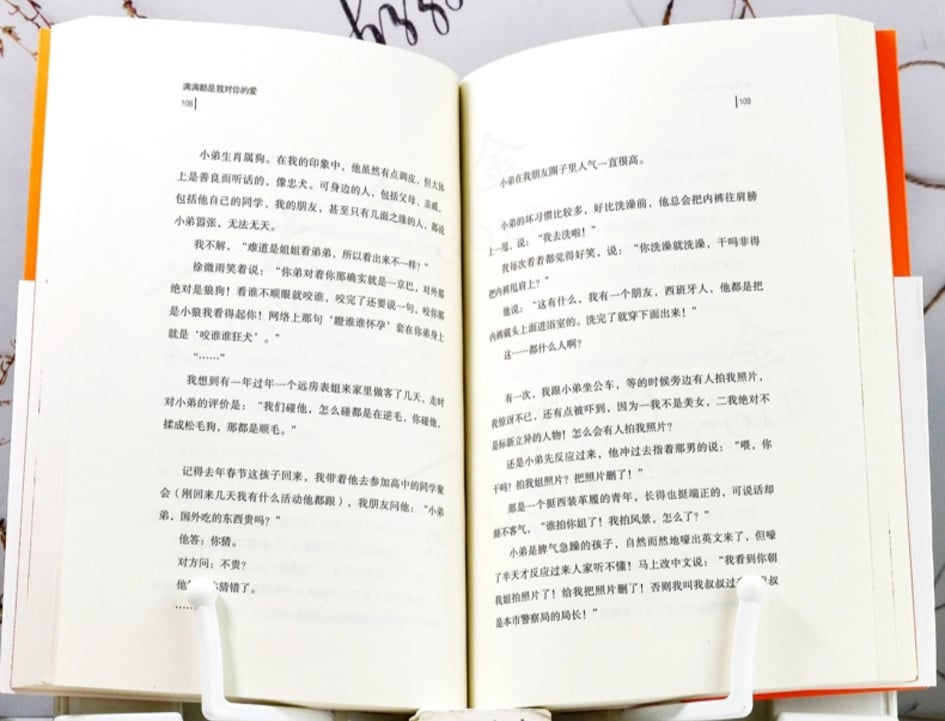 满满都是我对你的爱
108
小弟生肖属狗。在我的印象中，他虽然有点调皮，但大体
上是善良而听话的，像忠犬。可身边的人，包括父母、亲戚，
包括他自己的同学、我的朋友，甚至只有几面之缘的人，都说
小弟嚣张，无法无天。
我不解，“难道是姐姐看弟弟，所以看出来不一样？”
徐微雨笑着说：“你弟对着你那确实就是一京巴，对外那
绝对是狼狗！看谁不顺眼就咬谁，咬完了还要说一句，咬你那
是小狼我看得起你！网络上那句‘瞪谁谁怀孕’套在你弟身上
就是‘咬谁谁狂犬’。”
“……”
我想到有一年过年一个远房表姐来家里做客了几天，走时
对小弟的评价是：“我们碰他，怎么碰都是在逆毛，你碰他，
揉成松毛狗，那都是顺毛。”
记得去年春节这孩子回来，我带着他去参加高中的同学聚
会（刚回来几天我有什么活动他都跟），我朋友问他：“小弟
弟，国外吃的东西贵吗？”
他答：你猜。
对方问：不贵？
他 猜错了。
……
109
小弟在我朋友圈子里人气一直很高。
小弟的坏习惯比较多，好比洗澡前，他总会把内裤往肩膀
上一甩，说：“我去洗啦！”
我每次看着都觉得好笑，说：“你洗澡就洗澡，干吗非得
把内裤甩肩上？”
他说：“这有什么，我有一个朋友，西班牙人，他都是把
内裤戴头上面进浴室的。洗完了就穿下面出来！”
这……都什么人啊？
有一次，我跟小弟坐公车，等的时候旁边有人拍我照片，
我惊讶不已，还有点被吓到，因为一我不是美女，二我绝对不
是标新立异的人物！怎么会有人拍我照片？
还是小弟先反应过来，他冲过去指着那男的说：“喂，你
干吗？拍我姐照片？把照片删了！”
那是一个挺西装革履的青年，长得也挺端正的，可说话却
颇不客气，“谁拍你姐了！我拍风景，怎么了？”
小弟是脾气急躁的孩子，自然而然地嚎出英文来了，但嚎
了半天才反应过来人家听不懂！马上改中文说：“我看到你朝
我姐拍照片了！给我把照片删了！否则我叫我叔叔过 我叔
是本市警察局的局长！”